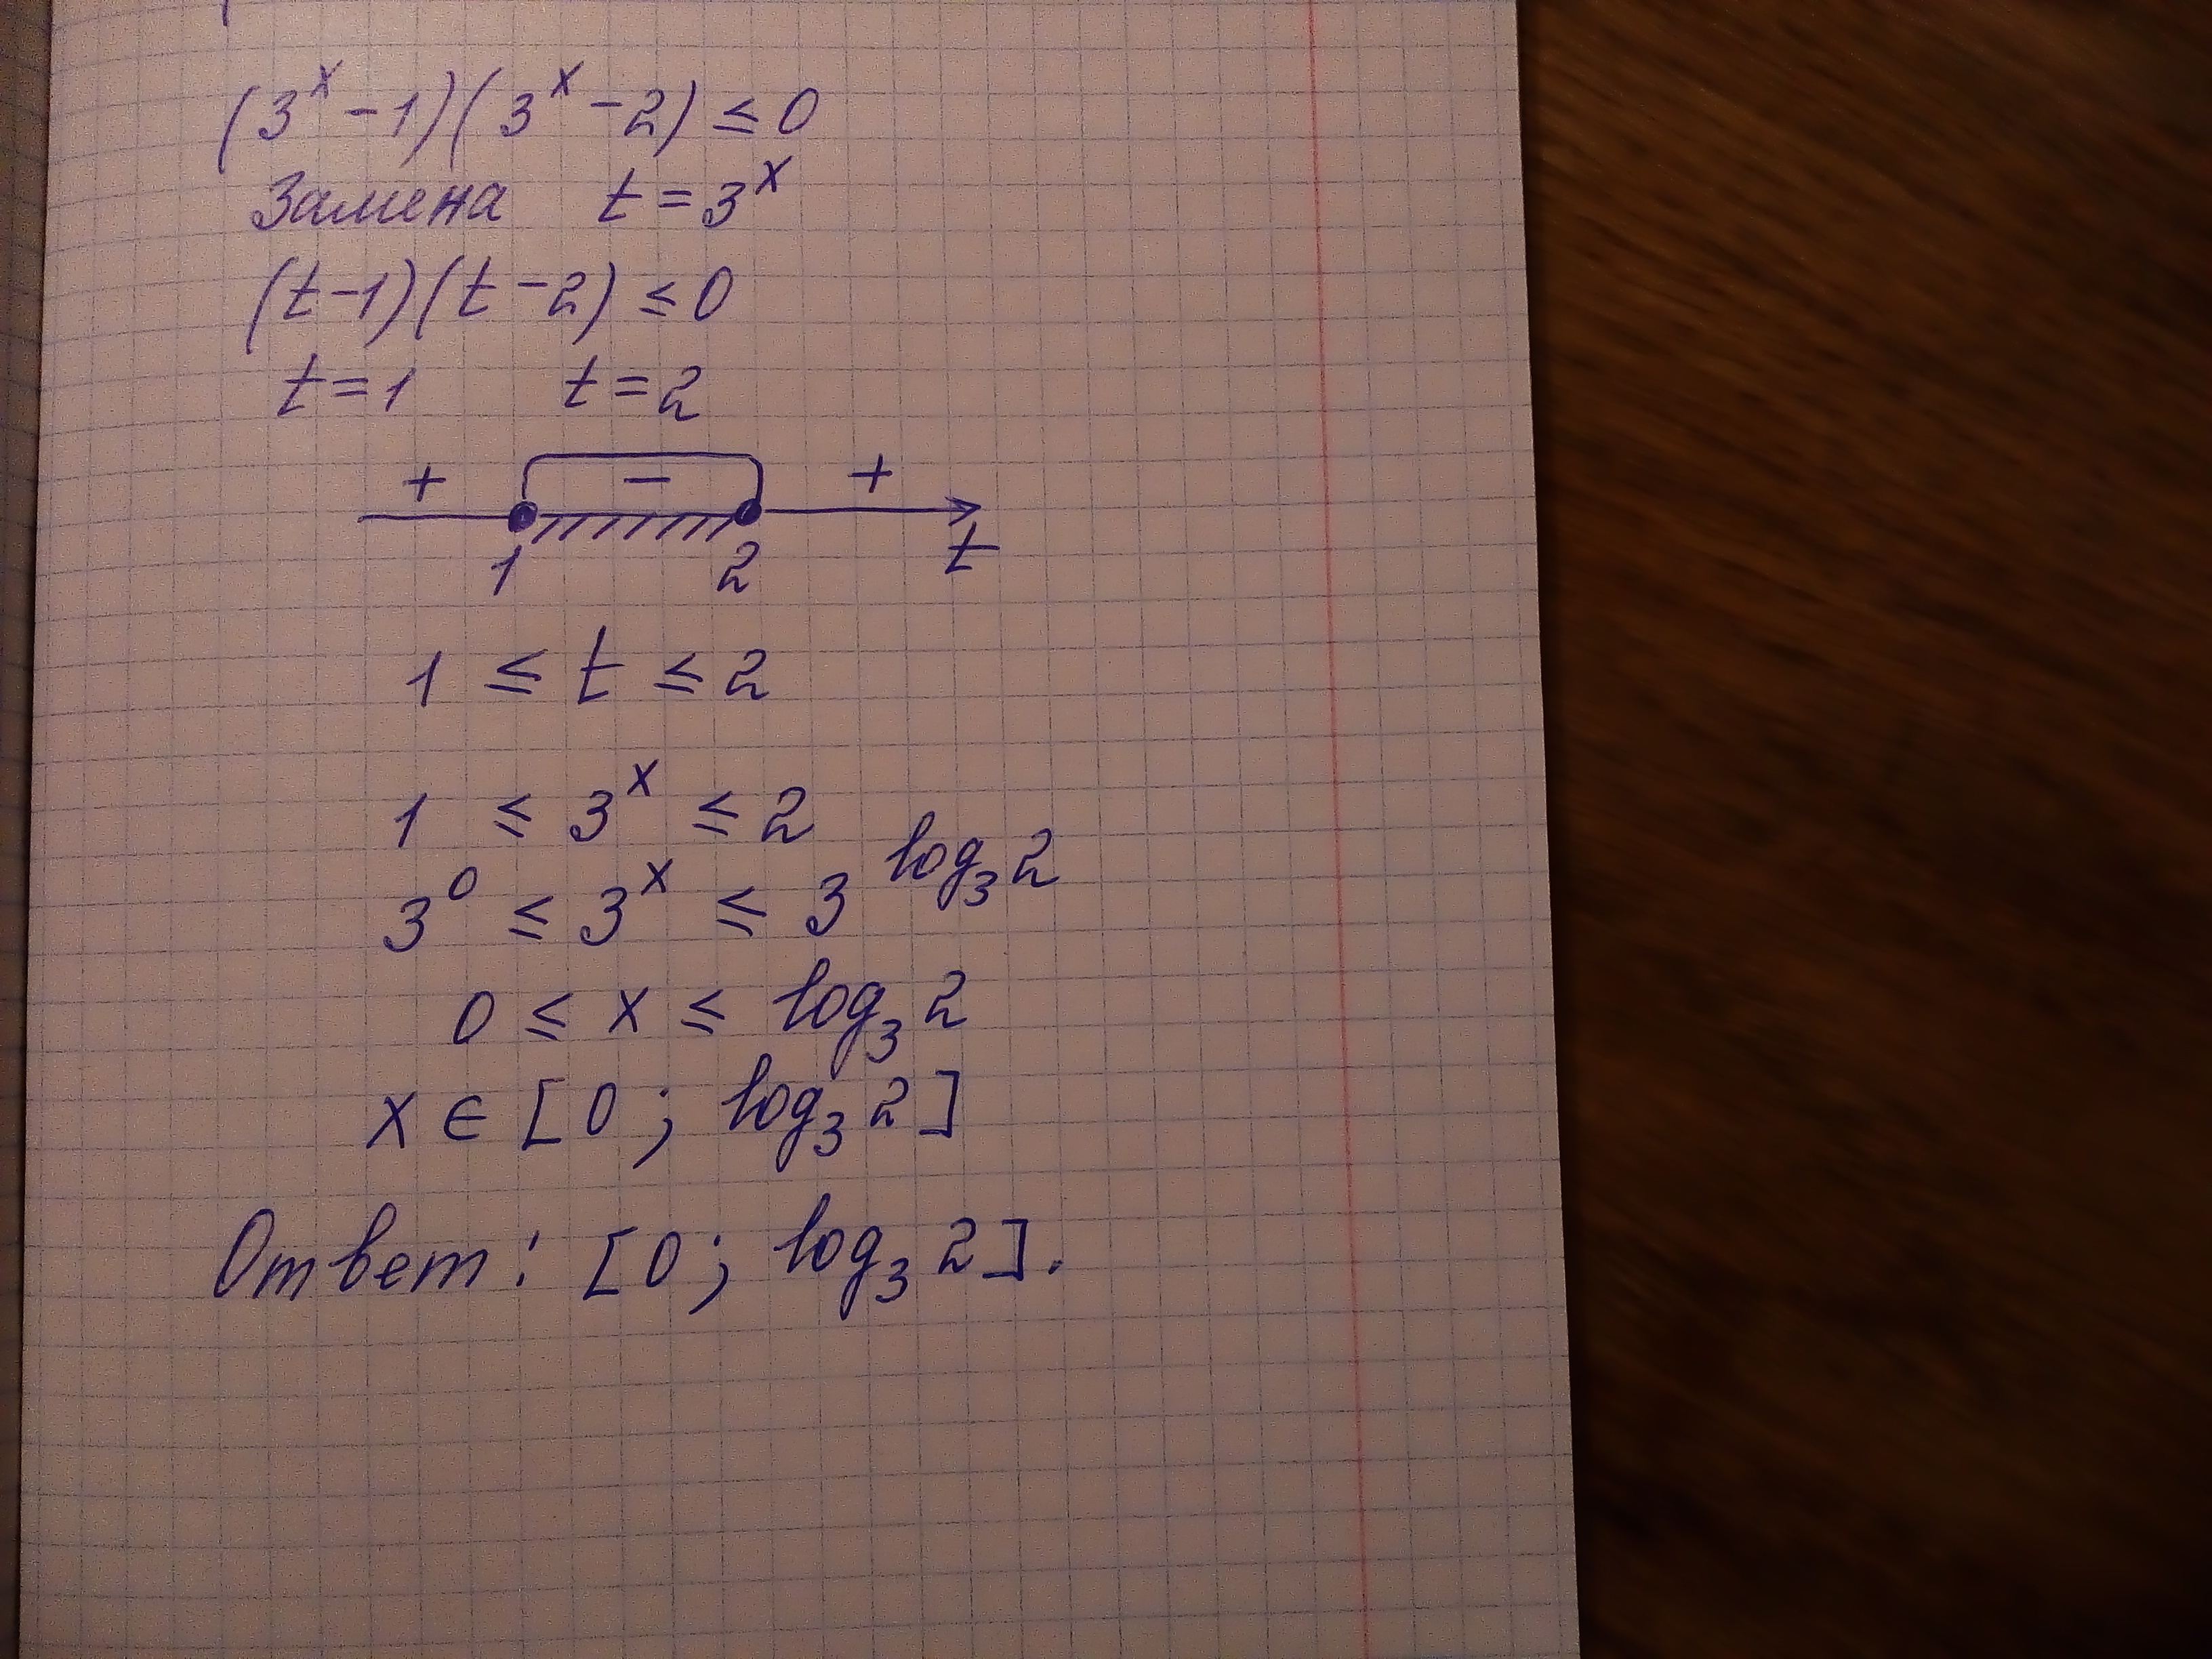 (3ˣ - 1)(3ˣ - 2) ≤ 0
Замена t = 3ˣ
(t - 1)(t - 2) ≤ 0
t = 1 t = 2
+ − +
1 2 t
1 ≤ t ≤ 2
1 ≤ 3ˣ ≤ 2
3⁰ ≤ 3ˣ ≤ 3^(log₃ 2)
0 ≤ x ≤ log₃ 2
x ∈ [0; log₃ 2]
Ответ: [0; log₃ 2].